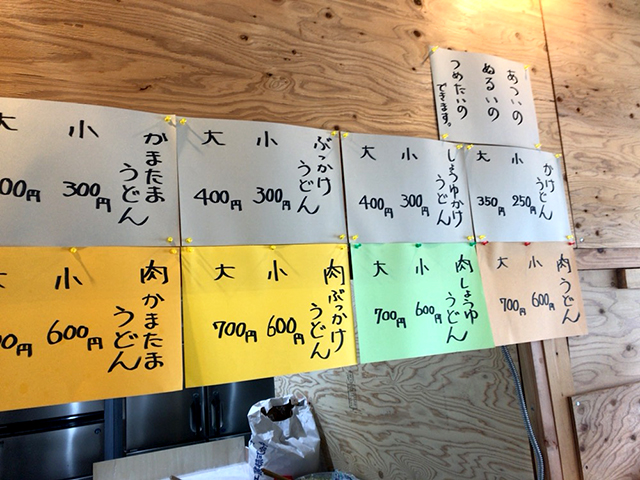 あついの
ぬるいの
つめたいの
できます。
かけ
うどん
小 250円
大 350円
しょうゆかけ
うどん
小 300円
大 400円
ぶっかけ
うどん
小 300円
大 400円
かまたま
うどん
小 300円
大 00円
肉うどん
小 600円
大 700円
肉しょうゆ
うどん
小 600円
大 700円
肉ぶっかけ
うどん
小 600円
大 700円
肉かまたま
うどん
小 600円
大 00円